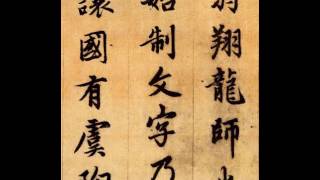 翔龍師
始制文字乃
讓國有虞